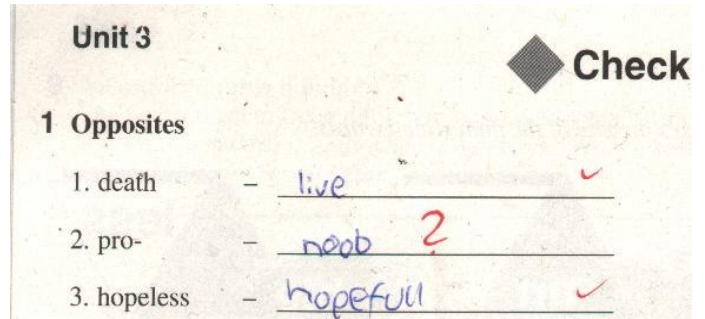 Unit 3
Check
1 Opposites
1. death – live
2. pro- – noob ?
3. hopeless – hopefull